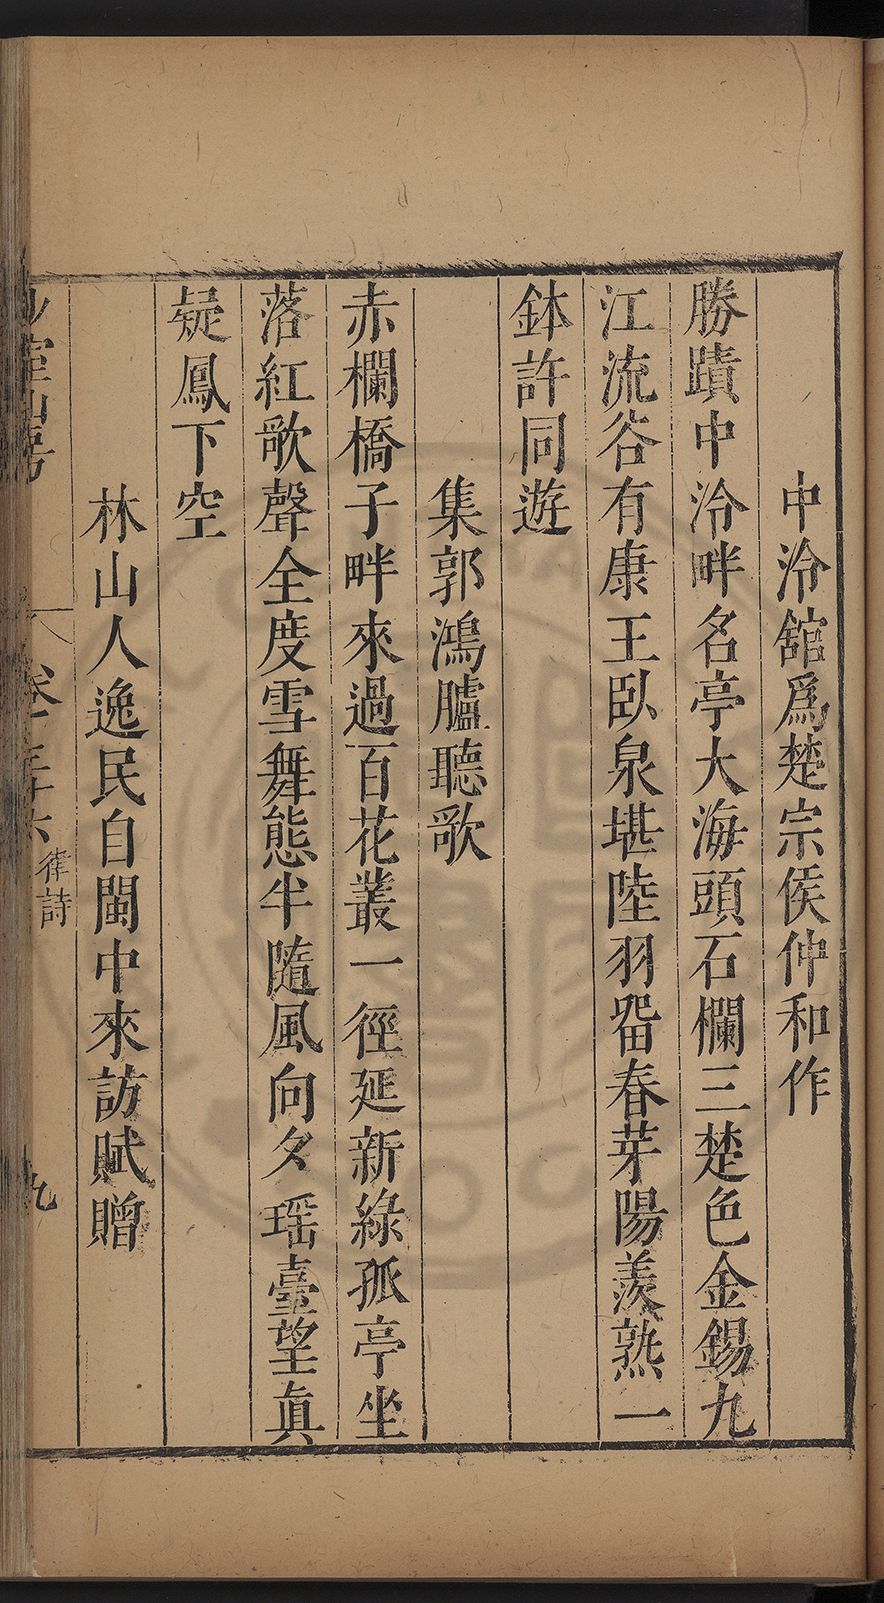 中泠舘爲楚宗侯仲和作
勝蹟中泠畔名亭大海頭石欄三楚色金錫九
江流谷有康王臥泉堪陸羽畱春芽陽羨熟一
鉢許同遊
集郭鴻臚聽歌
赤欄橋子畔來過百花叢一徑延新綠孤亭坐
落紅歌聲全度雪舞態半隨風向夕瑶臺望真
疑鳳下空
林山人逸民自閩中來訪賦贈
少室山房
律詩
九